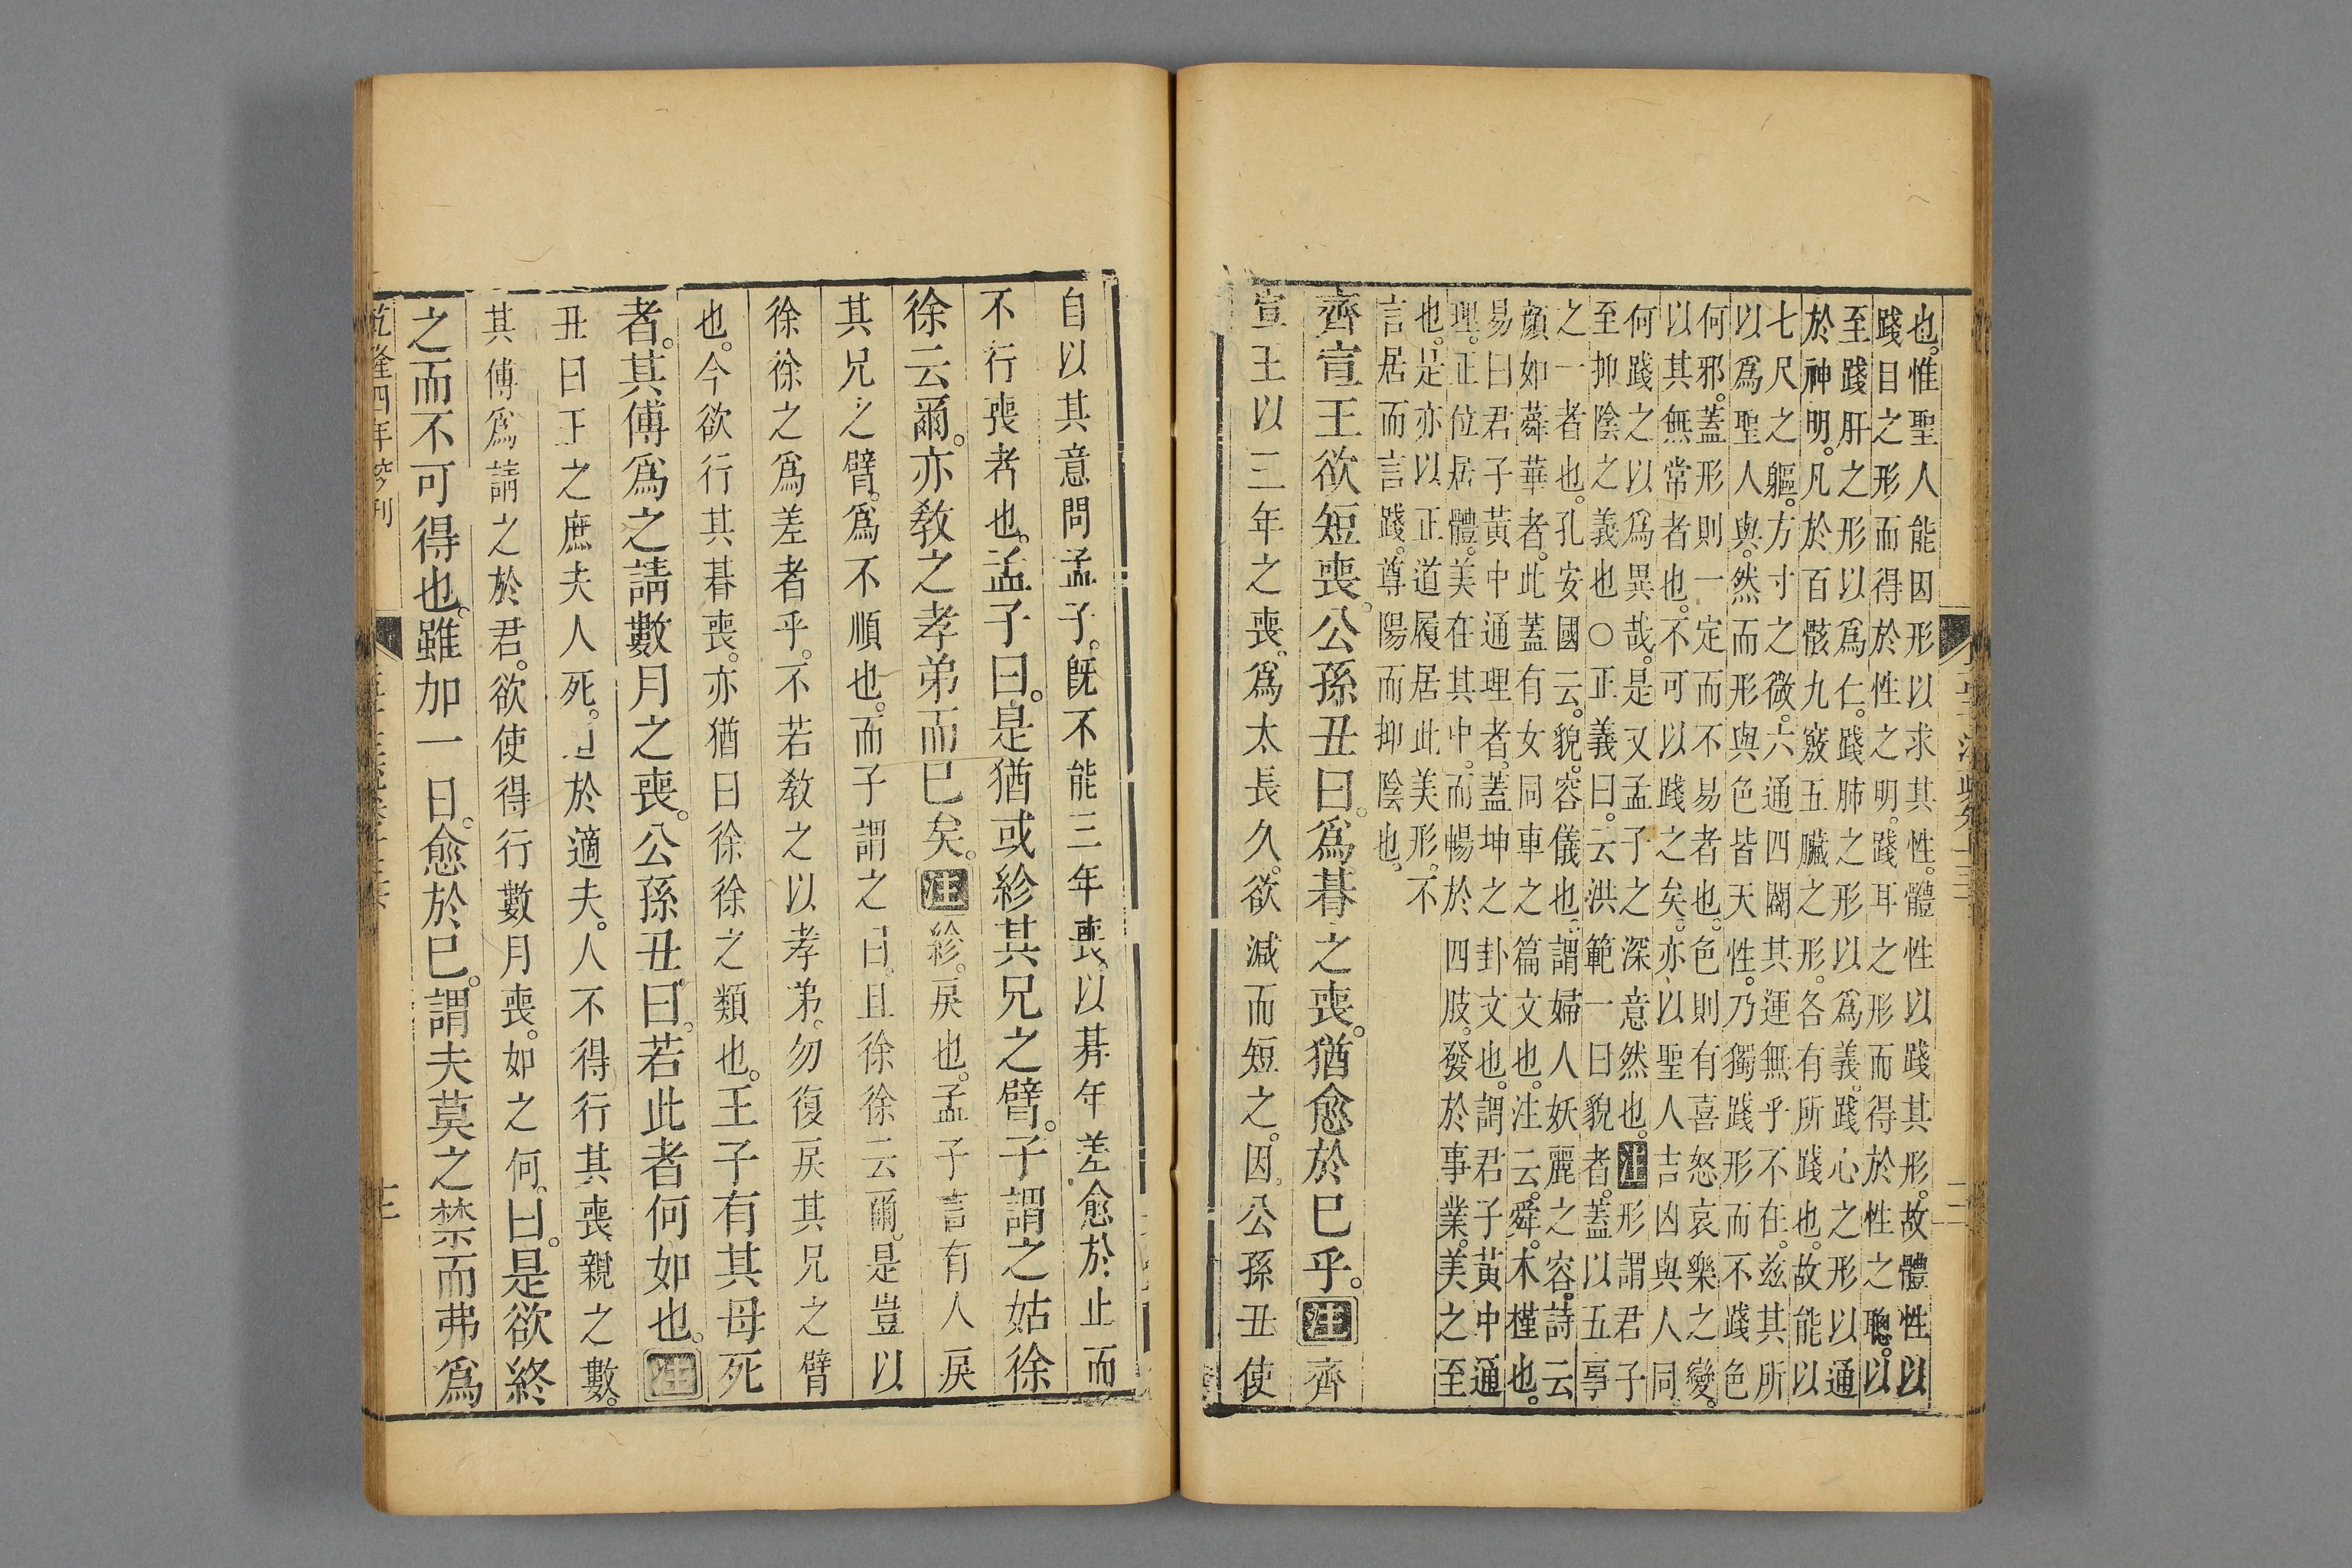 也。惟聖人能因形以求其性。體性以踐其形。故體性以
踐目之形而得於性之明。踐耳之形而得於性之聰。以
至踐肝之形以爲仁。踐肺之形以爲義。踐心之形以通
於神明。凡於百骸九竅五臟之形。各有所踐也。故能以
七尺之軀。方寸之微。六通四闢。其運無乎不在。兹其所
以爲聖人與。然而形與色皆天性。乃獨踐形而不踐色
何邪。蓋形則一定而不易者也。色則有喜怒哀樂之變。
以其無常者也。不可以踐之矣。亦以聖人吉凶與人同。
何踐之以爲異哉。是又孟子之深意然也。注形謂君子
至抑陰之義也○正義曰。云洪範一曰貌者。蓋以五事
之一者也。孔安國云。貌。容儀也。謂婦人妖麗之容。詩云
顏如蕣華者。此蓋有女同車之篇文也。注云。舜。木槿也。
易曰君子黃中通理者。蓋坤之卦文也。謂君子黃中通
理。正位居體。美在其中。而暢於四肢。發於事業。美之至
也。是亦以正道履居此美形。不
言居而言踐。尊陽而抑陰也。
齊宣王欲短喪。公孫丑曰。爲朞之喪。猶愈於已乎。注齊
宣王以三年之喪。爲太長久。欲減而短之。因公孫丑使
自以其意問孟子。旣不能三年喪。以朞年差愈於止而
不行喪者也。孟子曰。是猶或紾其兄之臂。子謂之姑徐
徐云爾。亦敎之孝弟而已矣。注紾。戾也。孟子言有人戾
其兄之臂。爲不順也。而子謂之曰。且徐徐云爾。是豈以
徐徐之爲差者乎。不若敎之以孝弟。勿復戾其兄之臂
也。今欲行其朞喪。亦猶曰徐徐之類也。王子有其母死
者。其傅爲之請數月之喪。公孫丑曰。若此者何如也。注
丑曰王之庶夫人死。迫於適夫。人不得行其喪親之數。
其傅爲請之於君。欲使得行數月喪。如之何。曰。是欲終
之而不可得也。雖加一日。愈於已。謂夫莫之禁而弗爲
乾隆四年校刊